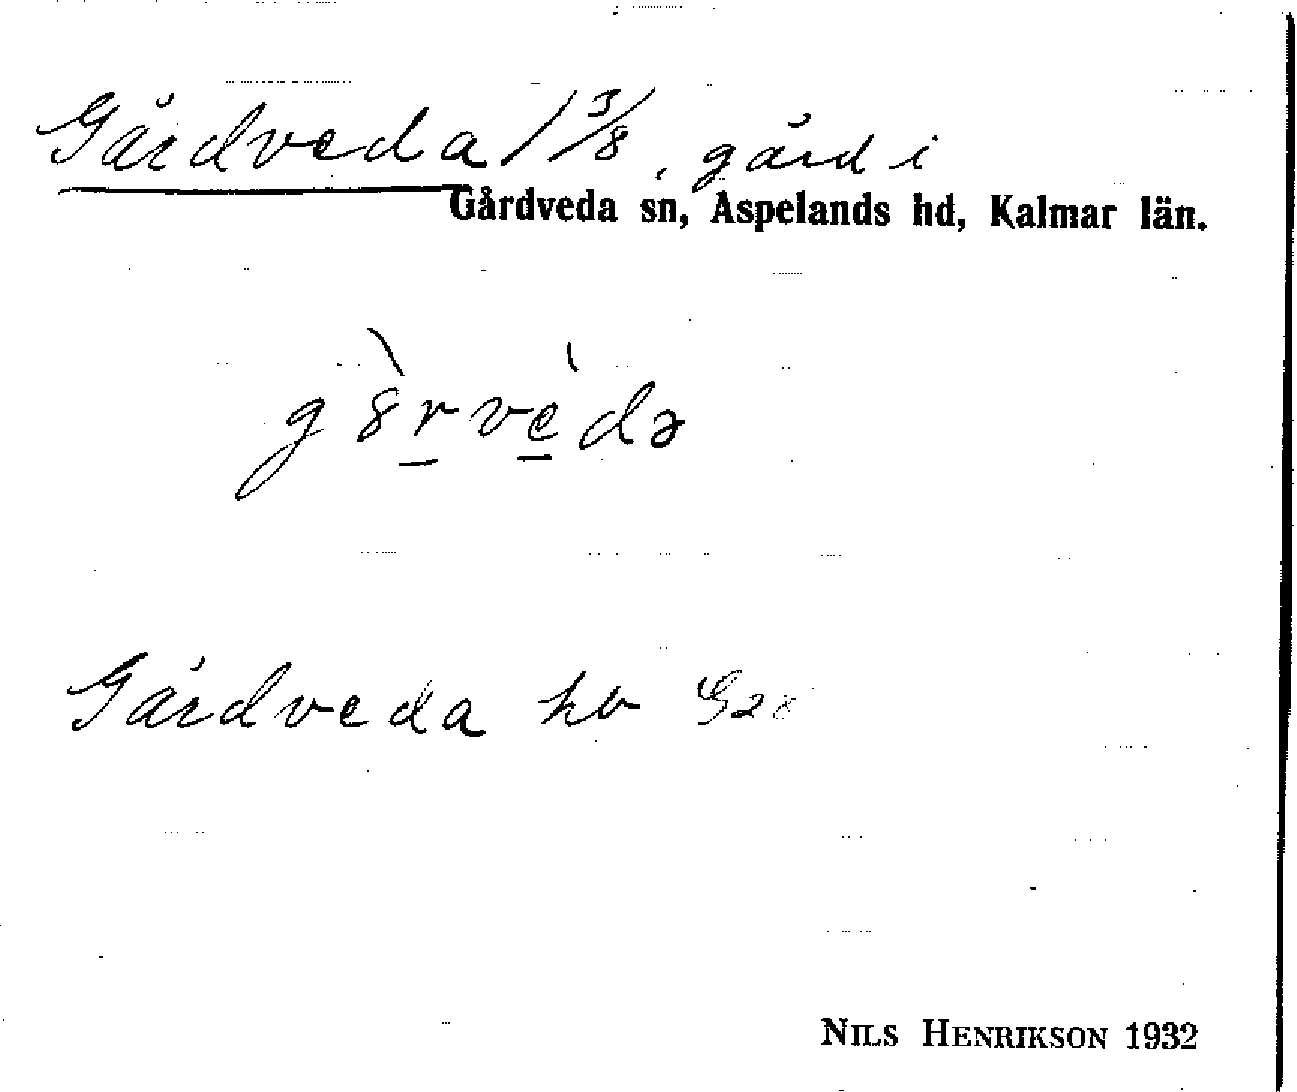 Gårdveda 1 3/8, gård i
Gårdveda sn, Aspelands hd, Kalmar län.
g8̀rvèdə
Gårdveda hb
NILS HENRIKSON 1932